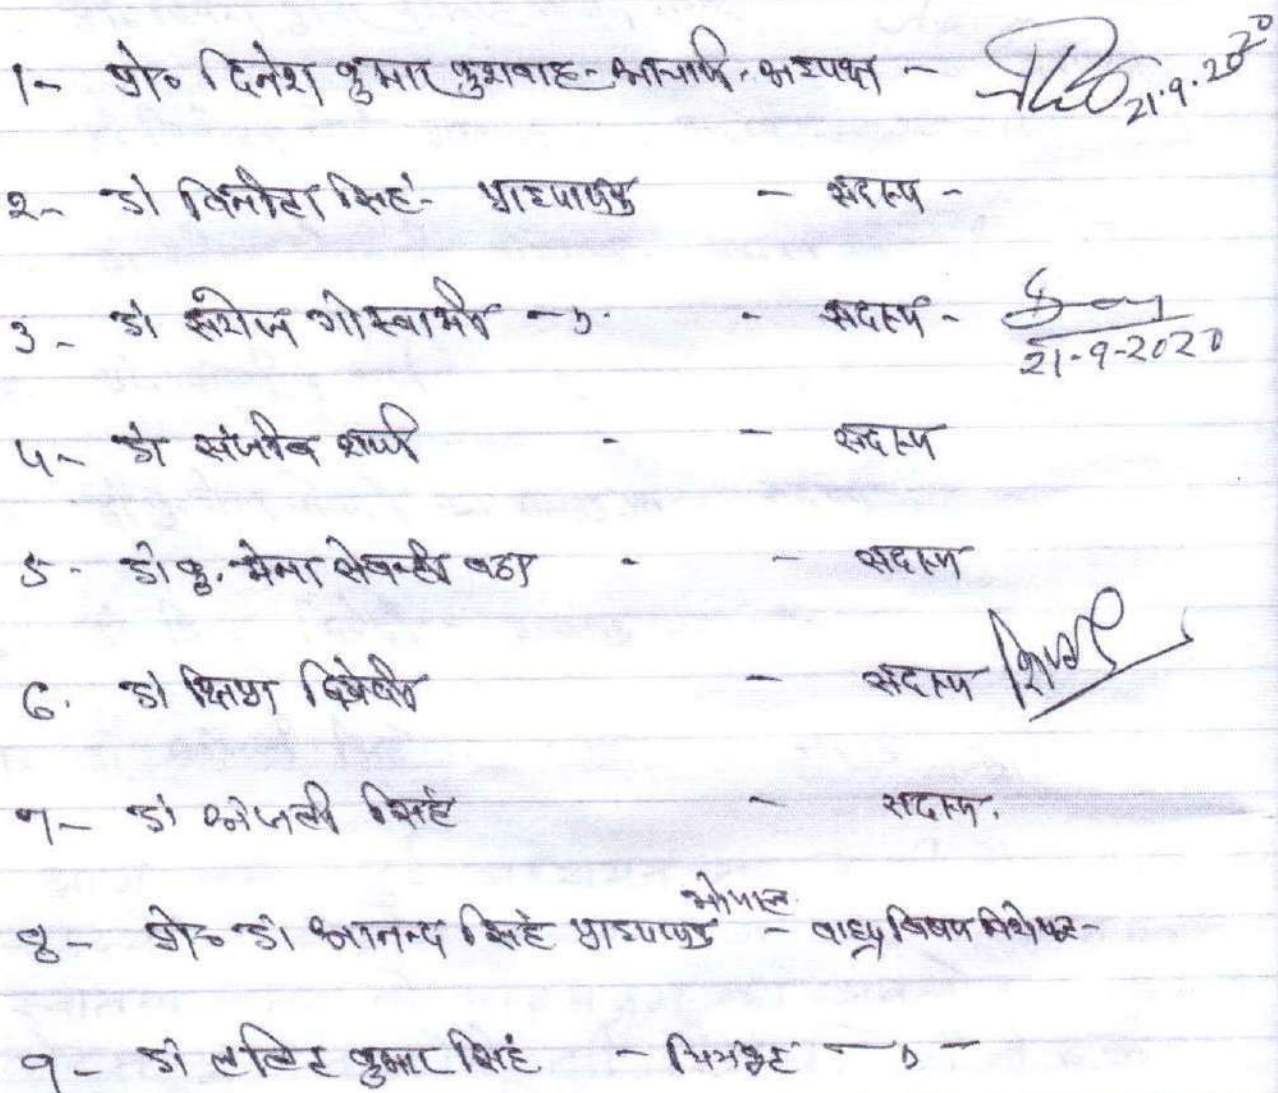 1- प्रो० दिनेश कुमार कुशवाह - आचार्य - अध्यक्ष - 21.9.2020
2- डॉ विनीता सिंह - प्राध्यापक - सदस्य -
3- डॉ सरोज गोस्वामी - „ - सदस्य - 21-9-2020
4- डॉ संजीव शर्मा - - सदस्य
5- डॉ कु. - - सदस्य
6. डॉ क्षिप्रा द्विवेदी - सदस्य
7- डॉ अंजली सिंह - सदस्य.
भोपाल
8- प्रो० डॉ आनन्द सिंह प्राध्यापक - वाह्य विषय विशेषज्ञ -
9- डॉ ललित कुमार सिंह - चित्रकूट - „ -